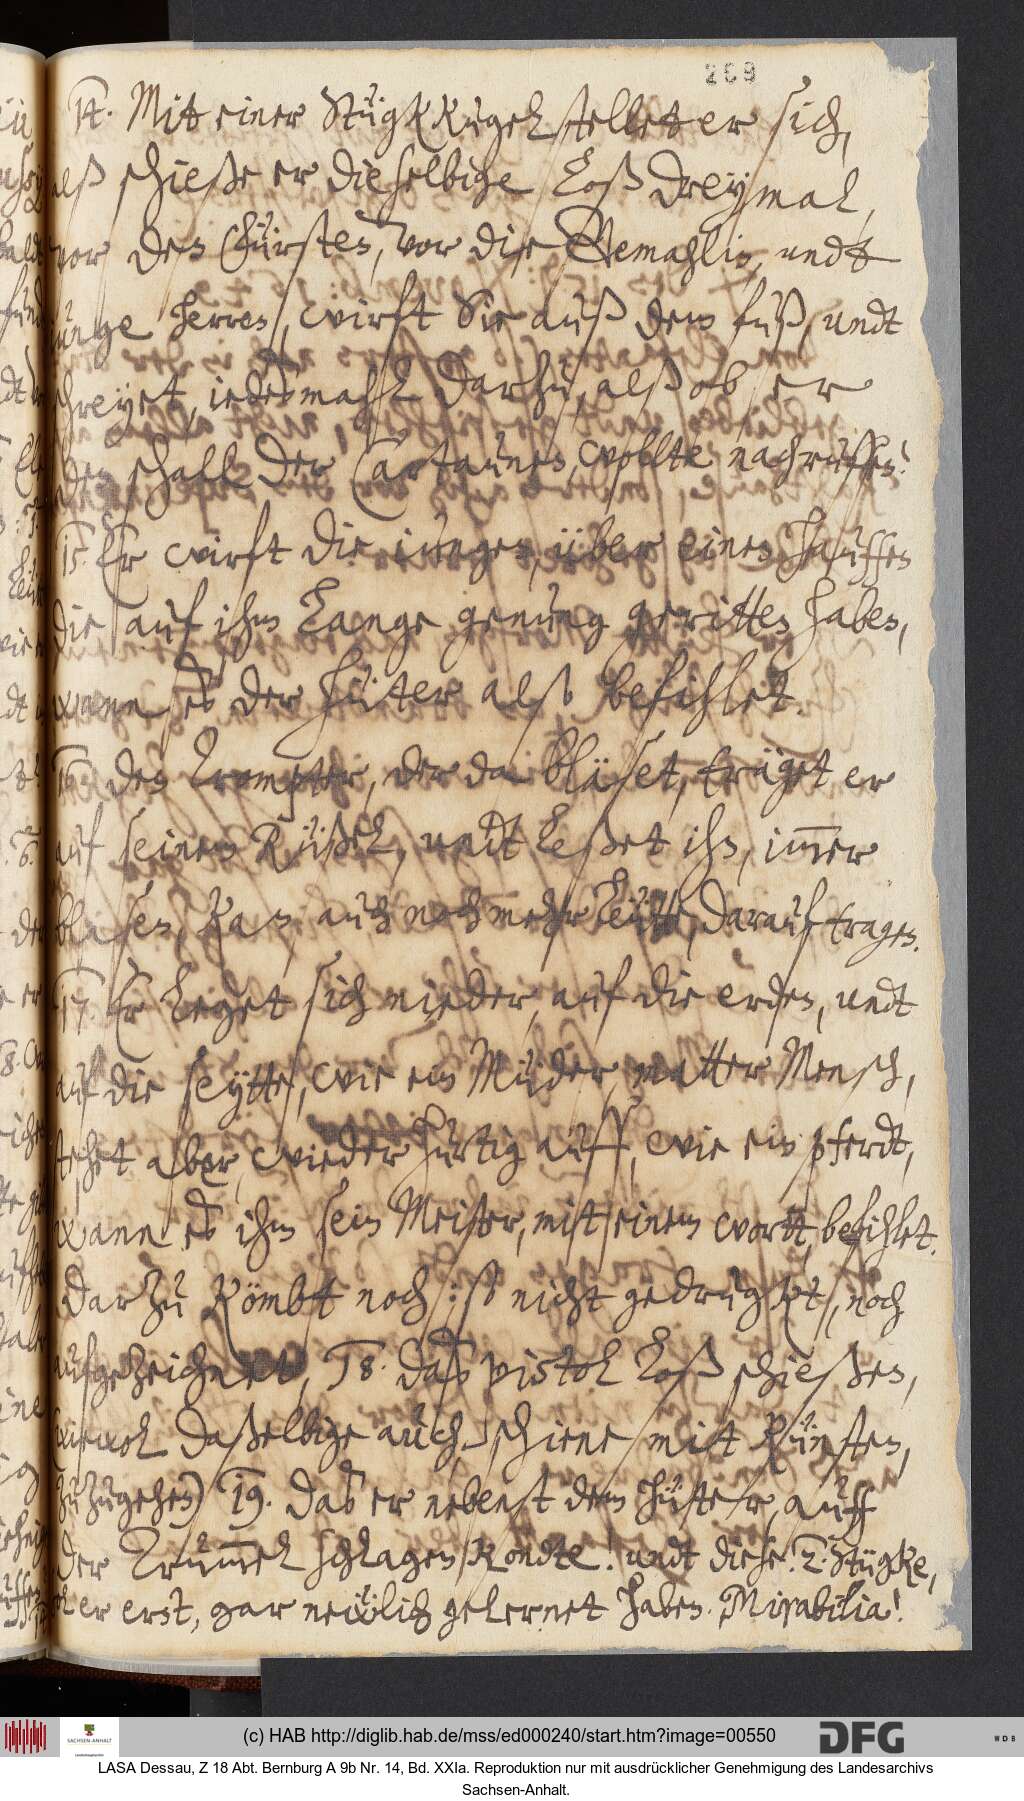 269
14. Mit einer StügkKugel stellet er sich,
alß schieße er dieselbige Loß dreymal,
vor den Fürsten, vor die Gemahlin, undt
iunge herren, wirft Sie auß dem fuß, undt
schreyet, iedesmahl darzu, alß ob er
den schall der Cartaunen, wollte nachruffen!
15. Er wirft die iungen, über einen hauffen
die auf ihm Lange genung geritten haben,
wann es der hüter alß befihlet.
16. den Trompter, der da bläset, träget er
auf seinem Rüßel, undt leßet ihn, im̅er
blasen, kan auch noch mehr Leütte, darauf tragen.
17. Er leget sich nieder, auf die erden, undt
auf die seytte, wie ein Müder, matter Mensch,
stehet aber, wieder hurtig auff, wie ein pferdt,
wann es ihm sein Meister, mit einem wortt, befihlet.
Darzu kömbt noch: so nicht gedrugkt, noch
aufgezeichnet, 18. das pistol Loß schießen,
wiewol daßelbige auch, schiene mit künsten,
zuzugehen) 19. das er nebenst dem hüter, auff
der Trum̅el schlagen kondte! undt diese 2. Stügke,
sol er erst, gar neẅlich gelernet haben. Mirabilia!
(c) HAB http://diglib.hab.de/mss/ed000240/start.htm?image=00550
SACHSEN-ANHALT
DFG
WDB
LASA Dessau, Z 18 Abt. Bernburg A 9b Nr. 14, Bd. XXIa. Reproduktion nur mit ausdrücklicher Genehmigung des Landesarchivs
Sachsen-Anhalt.